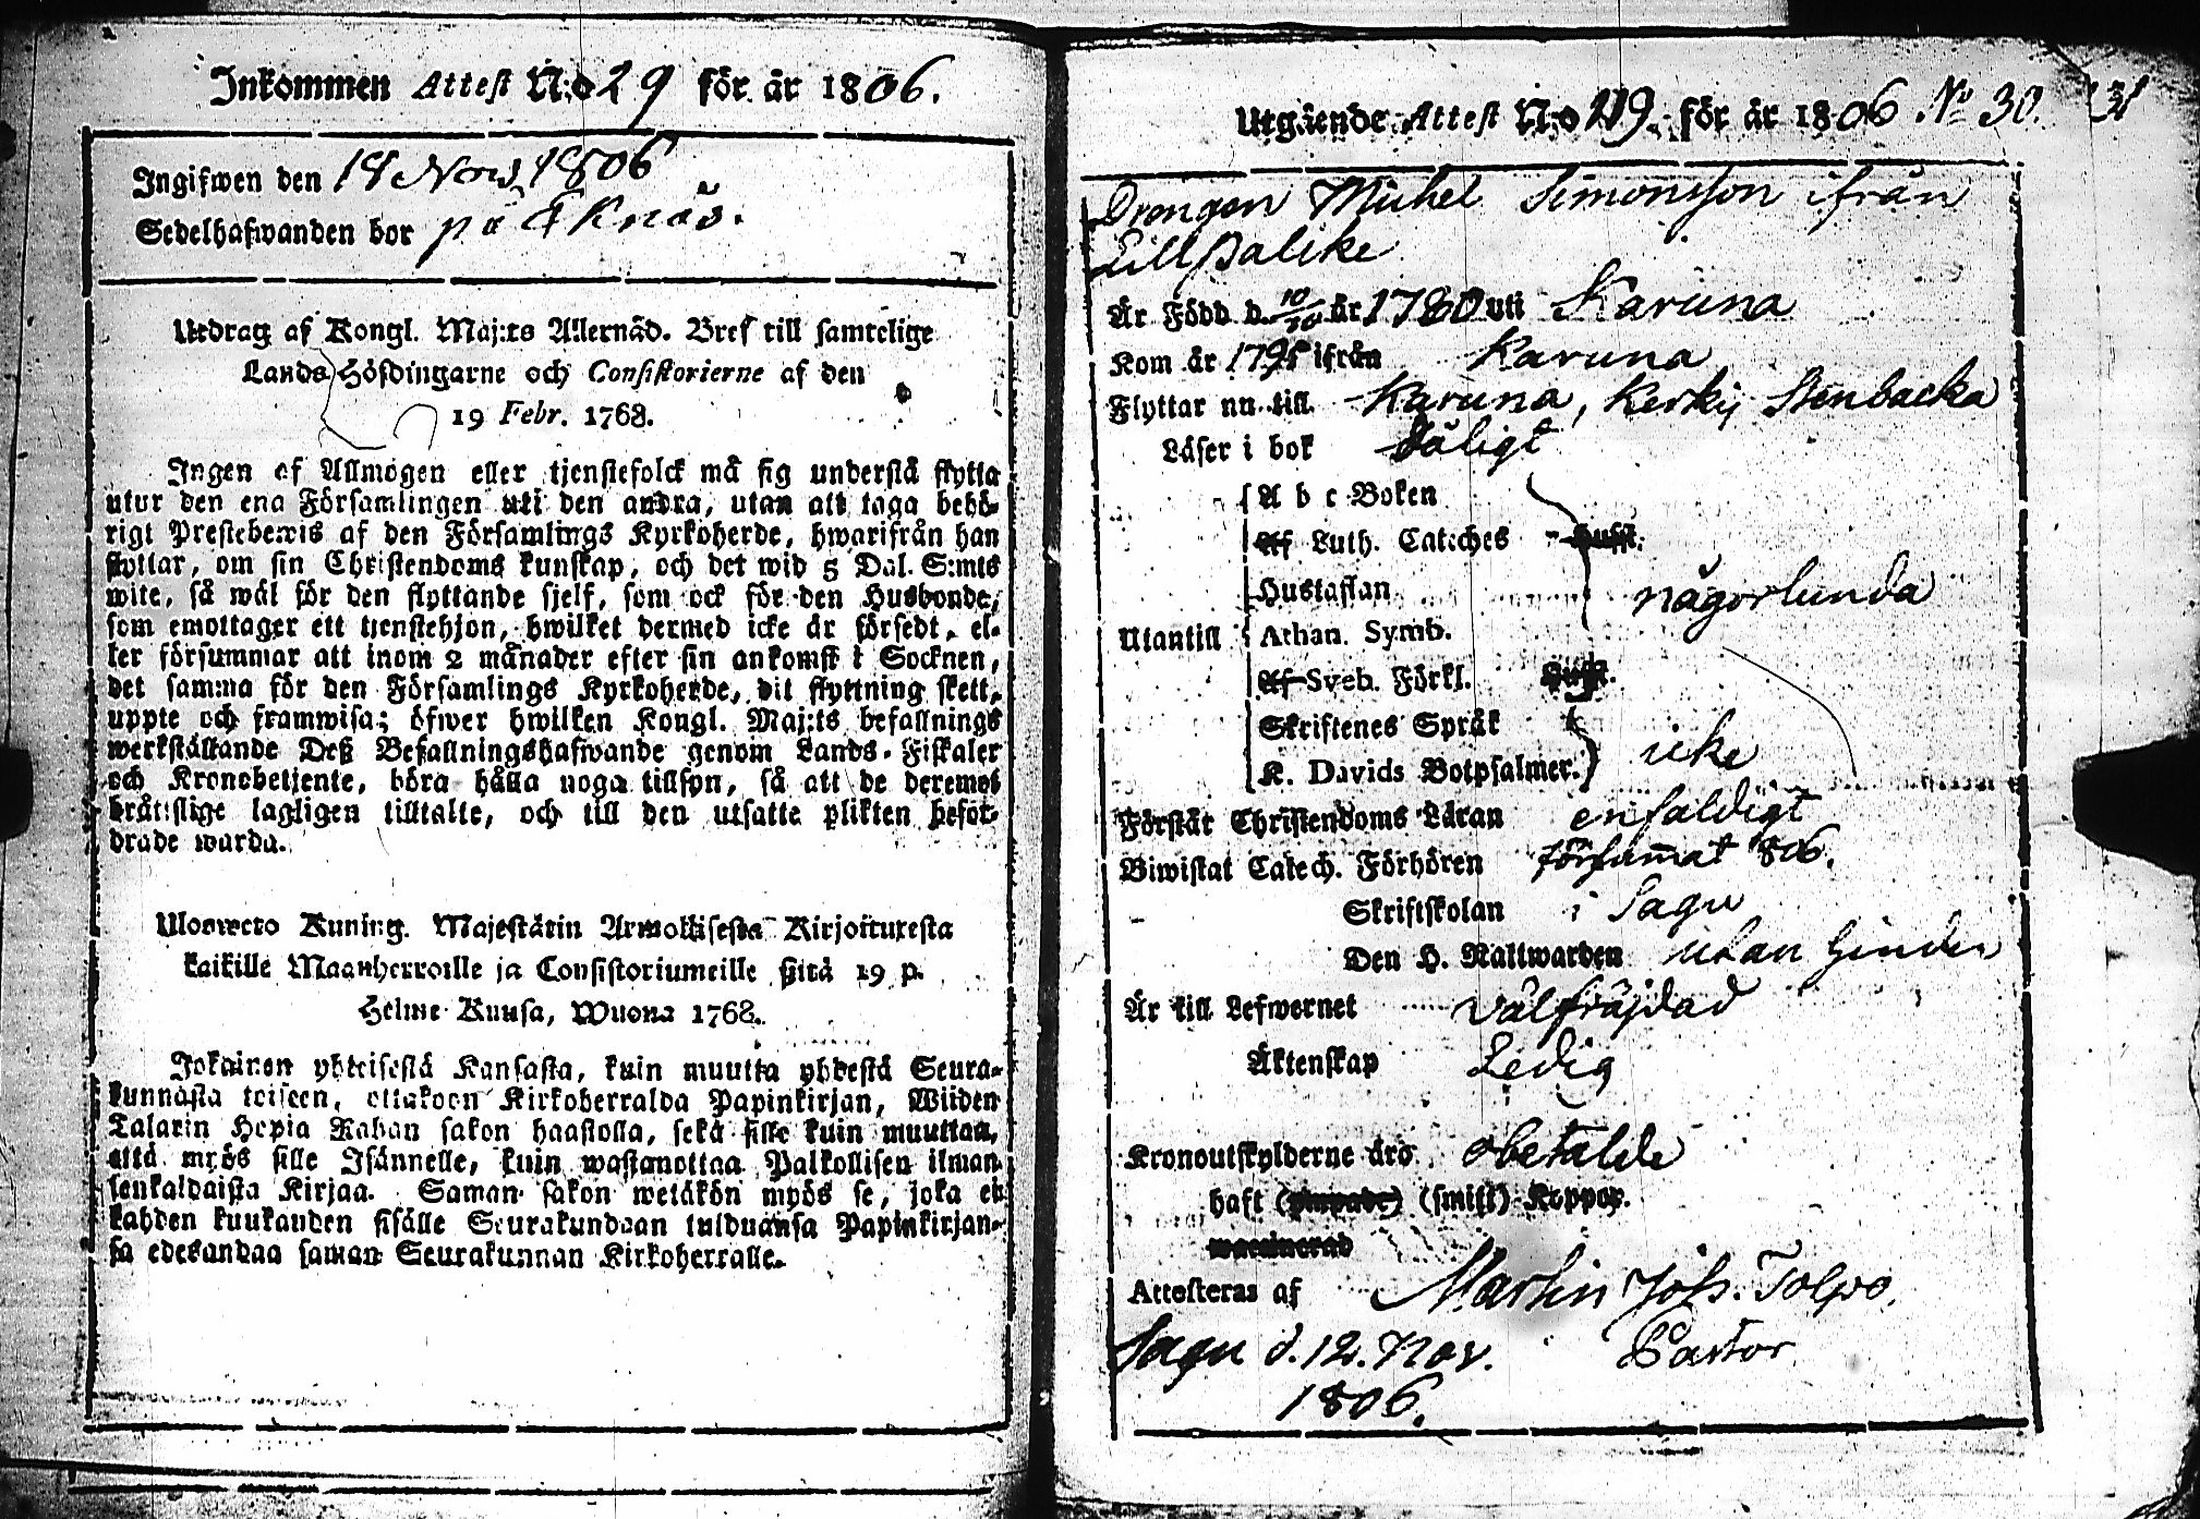 Inkommen Attest N:o 29 för år 1806.
Ingifwen den 18 Nov. 1806
Sedelhafwanden bor på Eknäs.
Utdrag af Kongl. Maj:ts Allernåd. Bref till samtelige
Lands Höfdingarne och Consistorierne af den
19 Febr. 1768.
Ingen af Allmogen eller tjenstefolck må sig understå flytta
utur den ena Församlingen uti den andra, utan att taga behö-
rigt Prestebewis af den Församlings Kyrkoherde, hwarifrån han
flyttar, om sin Christendoms kunskap, och det wid 5 Dal. S:mts
wite, så wäl för den flyttande sjelf, som ock för den Husbonde,
som emottager ett tjenstehjon, hwilket dermed icke är försedt, el-
ler försummar att inom 2 månader efter sin ankomst i Socknen,
det samma för den Församlings Kyrkoherde, dit flyttning skett,
uppte och framwisa; öfwer hwilken Kongl. Maj:ts befallnings
werkställande Deß Befallningshafwande genom Lands-Fiskaler
och Kronobetjente, böra hålla noga tillsyn, så att de deremot
bråttslige lagligen tilltalte, och till den utsatte plikten beför-
drade warda.
Ulosweto Kuning. Majestätin Armollisesta Kirjoituxesta
kaikille Maanherroille ja Consistoriumeille sitä 19 p.
Helme Kuusa, Wuona 1768.
Jokainen yhteisestä Kansasta, kuin muutta yhdestä Seura-
kunnasta toiseen, ottakoon Kirkoherralda Papinkirjan, Wiiden
Talarin Hopia Rahan sakon haastolla, sekä sille kuin muuttaa,
että myös sille Isännelle, kuin wastanottaa Palkollisen ilman
senkaldaista Kirjaa. Saman sakon wetäkön myös se, joka ei
kahden kuukauden sisälle Seurakundaan tulduansa Papinkirjan-
sa edesandaa saman Seurakunnan Kirkoherralle.
Utgående Attest N:o 29. för år 1806 No 30.
Drengen Michel Simonsson ifrån
Lillpalike
Är Född d. 10/10 år 1780 uti Karuna
Kom år 1795 ifrån Karuna
Flyttar nu till Karuna, Kerky Stenbacka
Läser i bok dåligt
A b c Boken
Af Luth. Cateches
Hustaflan någorlunda
Utantill Athan. Symb.
Af Sveb. Förkl.
Skriftenes Språk
K. Davids Botpsalmer. icke
Förstår Christendoms Läran enfaldigt
Biwistat Catech. Förhören försummat 806.
Skriftskolan i Sagu
Den H. Nattwarden utan hinder
Är till Lefwernet välfräjdad
Äktenskap Ledig
Kronoutskylderne äro obetalde
haft (ympade) (smitt) Koppor.
waccinerad
Attesteras af Martin Joh. Tolpo,
Pastor
Sagu d. 12. Nov.
1806.